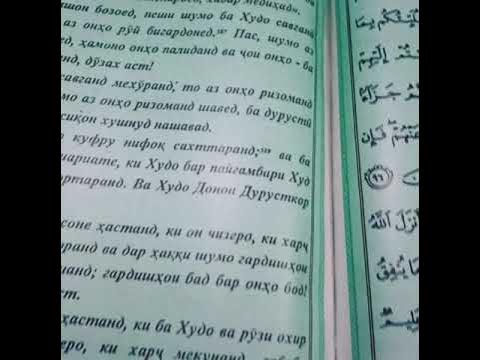 хабар медиҳад».
ишон бозоед, пеши шумо ба Худо савганд
аз онҳо рӯй бигардонед. Пас, шумо аз
ед, ҳамоно онҳо палиданд ва ҷои онҳо - ба
нд, дӯзах аст!
савганд мехӯранд, то аз онҳо ризоманд
мо аз онҳо ризоманд шавед, ба дурустӣ
сиқон хушнуд нашавад.
куфру нифоқ сахттаранд; ва ба
шариате, ки Худо бар пайғамбари Худ
ортаранд. Ва Худо Донои Дурусткор
соне ҳастанд, ки он чизеро, ки харҷ
оранд ва дар ҳаққи шумо гардишҳои
манд; гардишҳои бад бар онҳо бод!
ст.
ҳастанд, ки ба Худо ва рӯзи охир
зеро, ки харҷ мекунанд,
الْيَوْمِ
جَزَاءً
فَإِن
٩٦
أَنزَلَ اللَّهُ
مَا يُنفِقُ